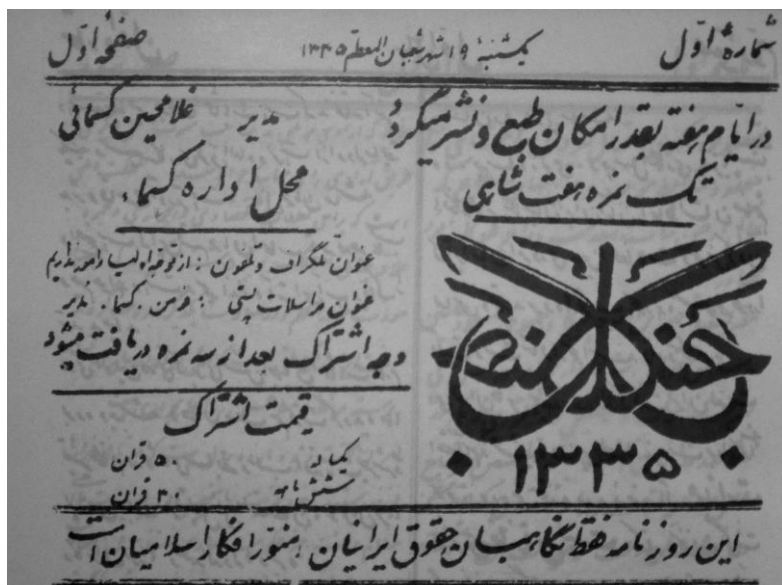 شماره اوّل
یکشنبهٔ ۱۹ شهر شعبان المعظم ۱۳۳۵
صفحه اوّل
در ایّام هفته بقدر امکان طبع و نشر میگردد
تک نمره هفت شاهی
جنگل
۱۳۳۵
مدیر غلامحسین کسمائی
محل اداره کسما
عنوان تلگراف و تلفون : از توجه اولیاء امور نداریم
عنوان مراسلات پستی : فومن . کسما . مدیر
وجه اشتراک بعد از سه نمره دریافت میشود
قیمت اشتراک
یکساله ۵۰ قران
ششماهه ۳۰ قران
این روزنامه فقط نگاهبان حقوق ایرانیان و منوّر افکار اسلامیان است